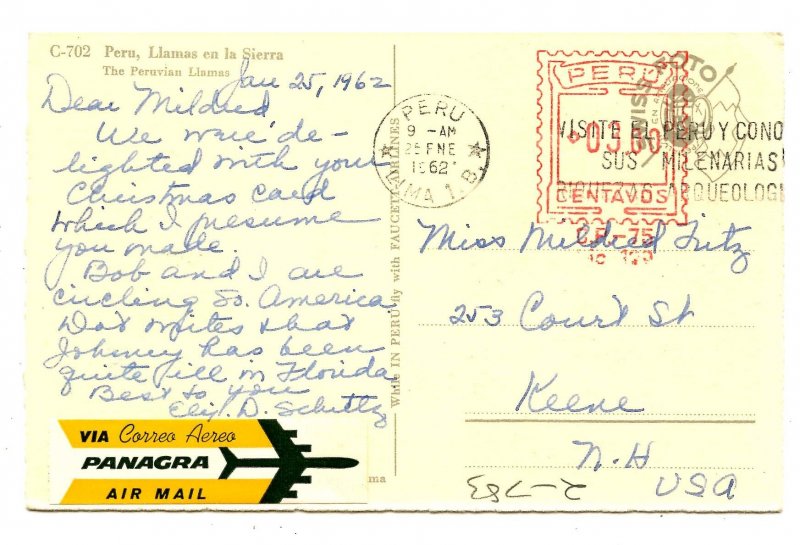 C-702 Peru, Llamas en la Sierra
The Peruvian Llamas
Jan 25, 1962
Dear Mildred,
We were de-
lighted with your
Christmas card
which I presume
you made.
Bob and I are
circling So. America
Dot writes that
Johnny has been
quite ill in Florida
Best to you
Eliz. D. Schultz
VIA Correo Aéreo
PANAGRA
AIR MAIL
While IN PERU fly with FAUCETT-AIRLINES
PERU
9 - AM
25 ENE
1962
LIMA 1. B.
SWISS FOTO
PERU
CENTAVOS
VISITE EL PERU Y CONO
SUS MILENARIAS
ARQUEOLOGI
Miss Mildred Fritz
253 Court St
Keene
N. H
USA
2-783